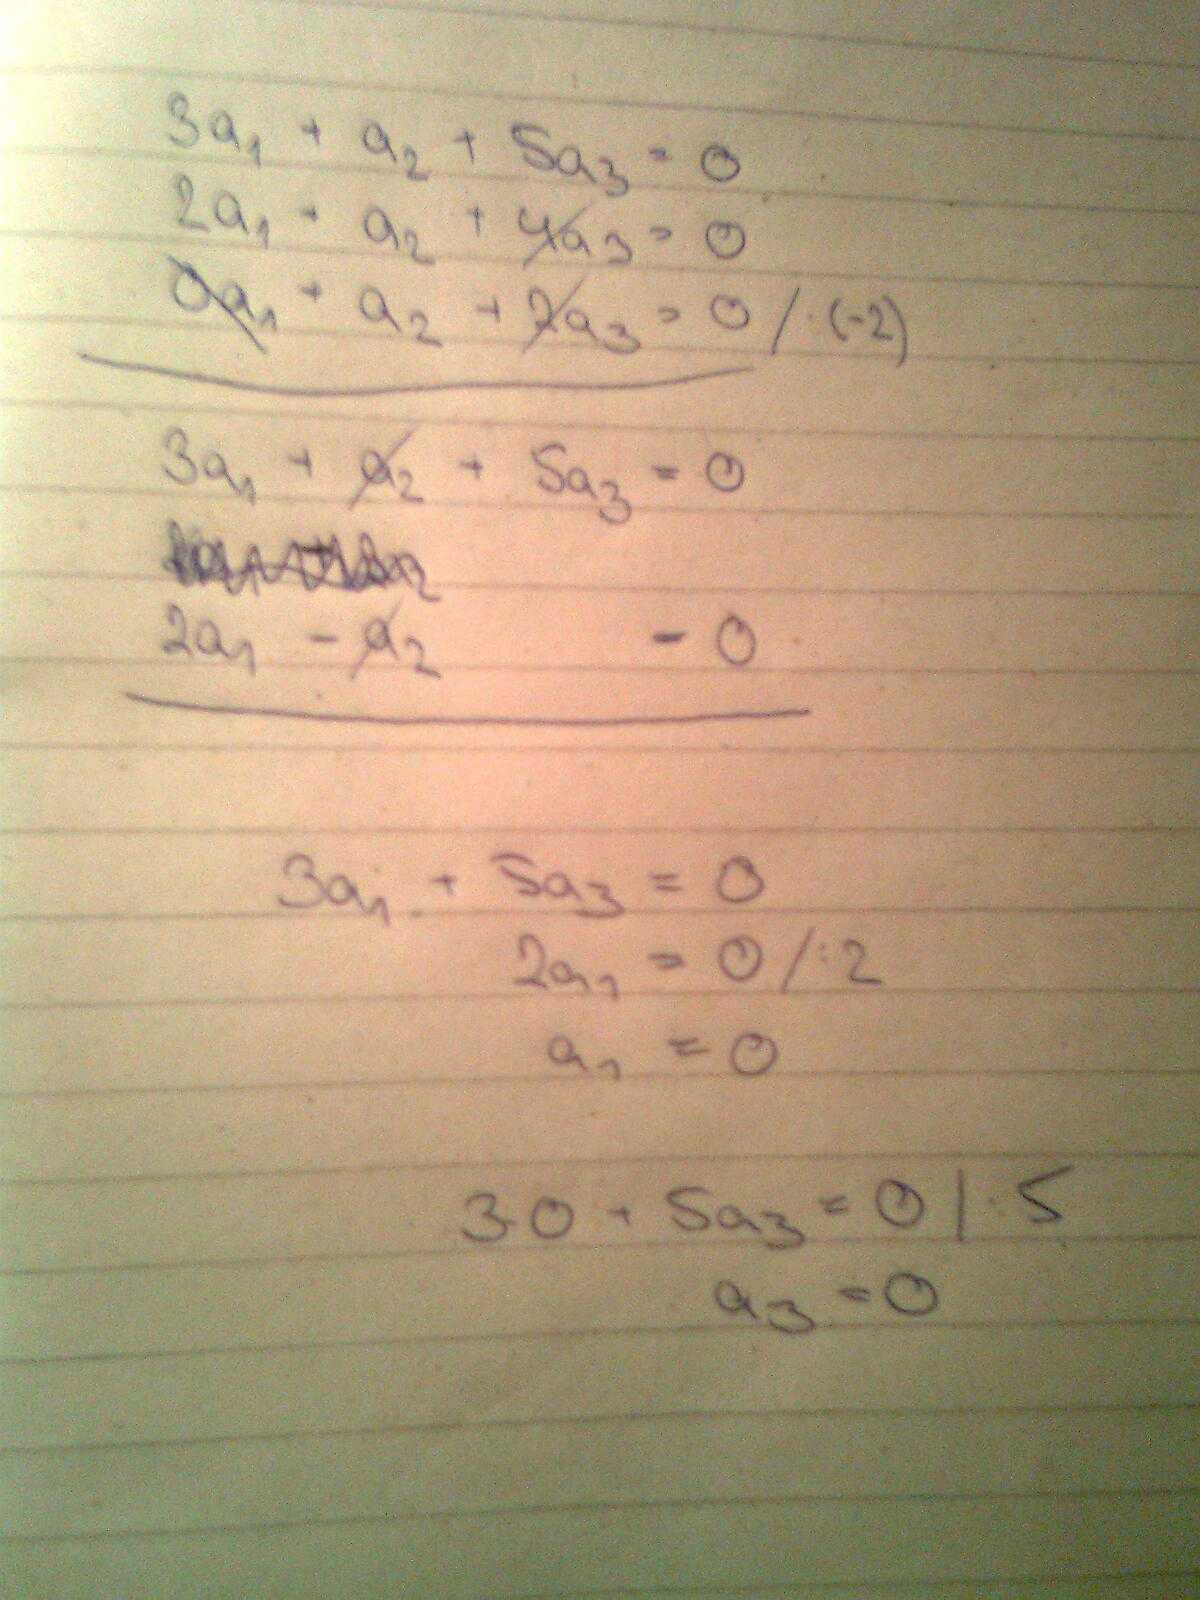 3a₁ + a₂ + 5a₃ = 0
2a₁ + a₂ + 4a₃ = 0
0a₁ + a₂ + 2a₃ = 0 / · (-2)
3a₁ + a₂ + 5a₃ = 0
2a₁ - a₂ = 0
3a₁ + 5a₃ = 0
2a₁ = 0 / : 2
a₁ = 0
3·0 + 5a₃ = 0 | : 5
a₃ = 0